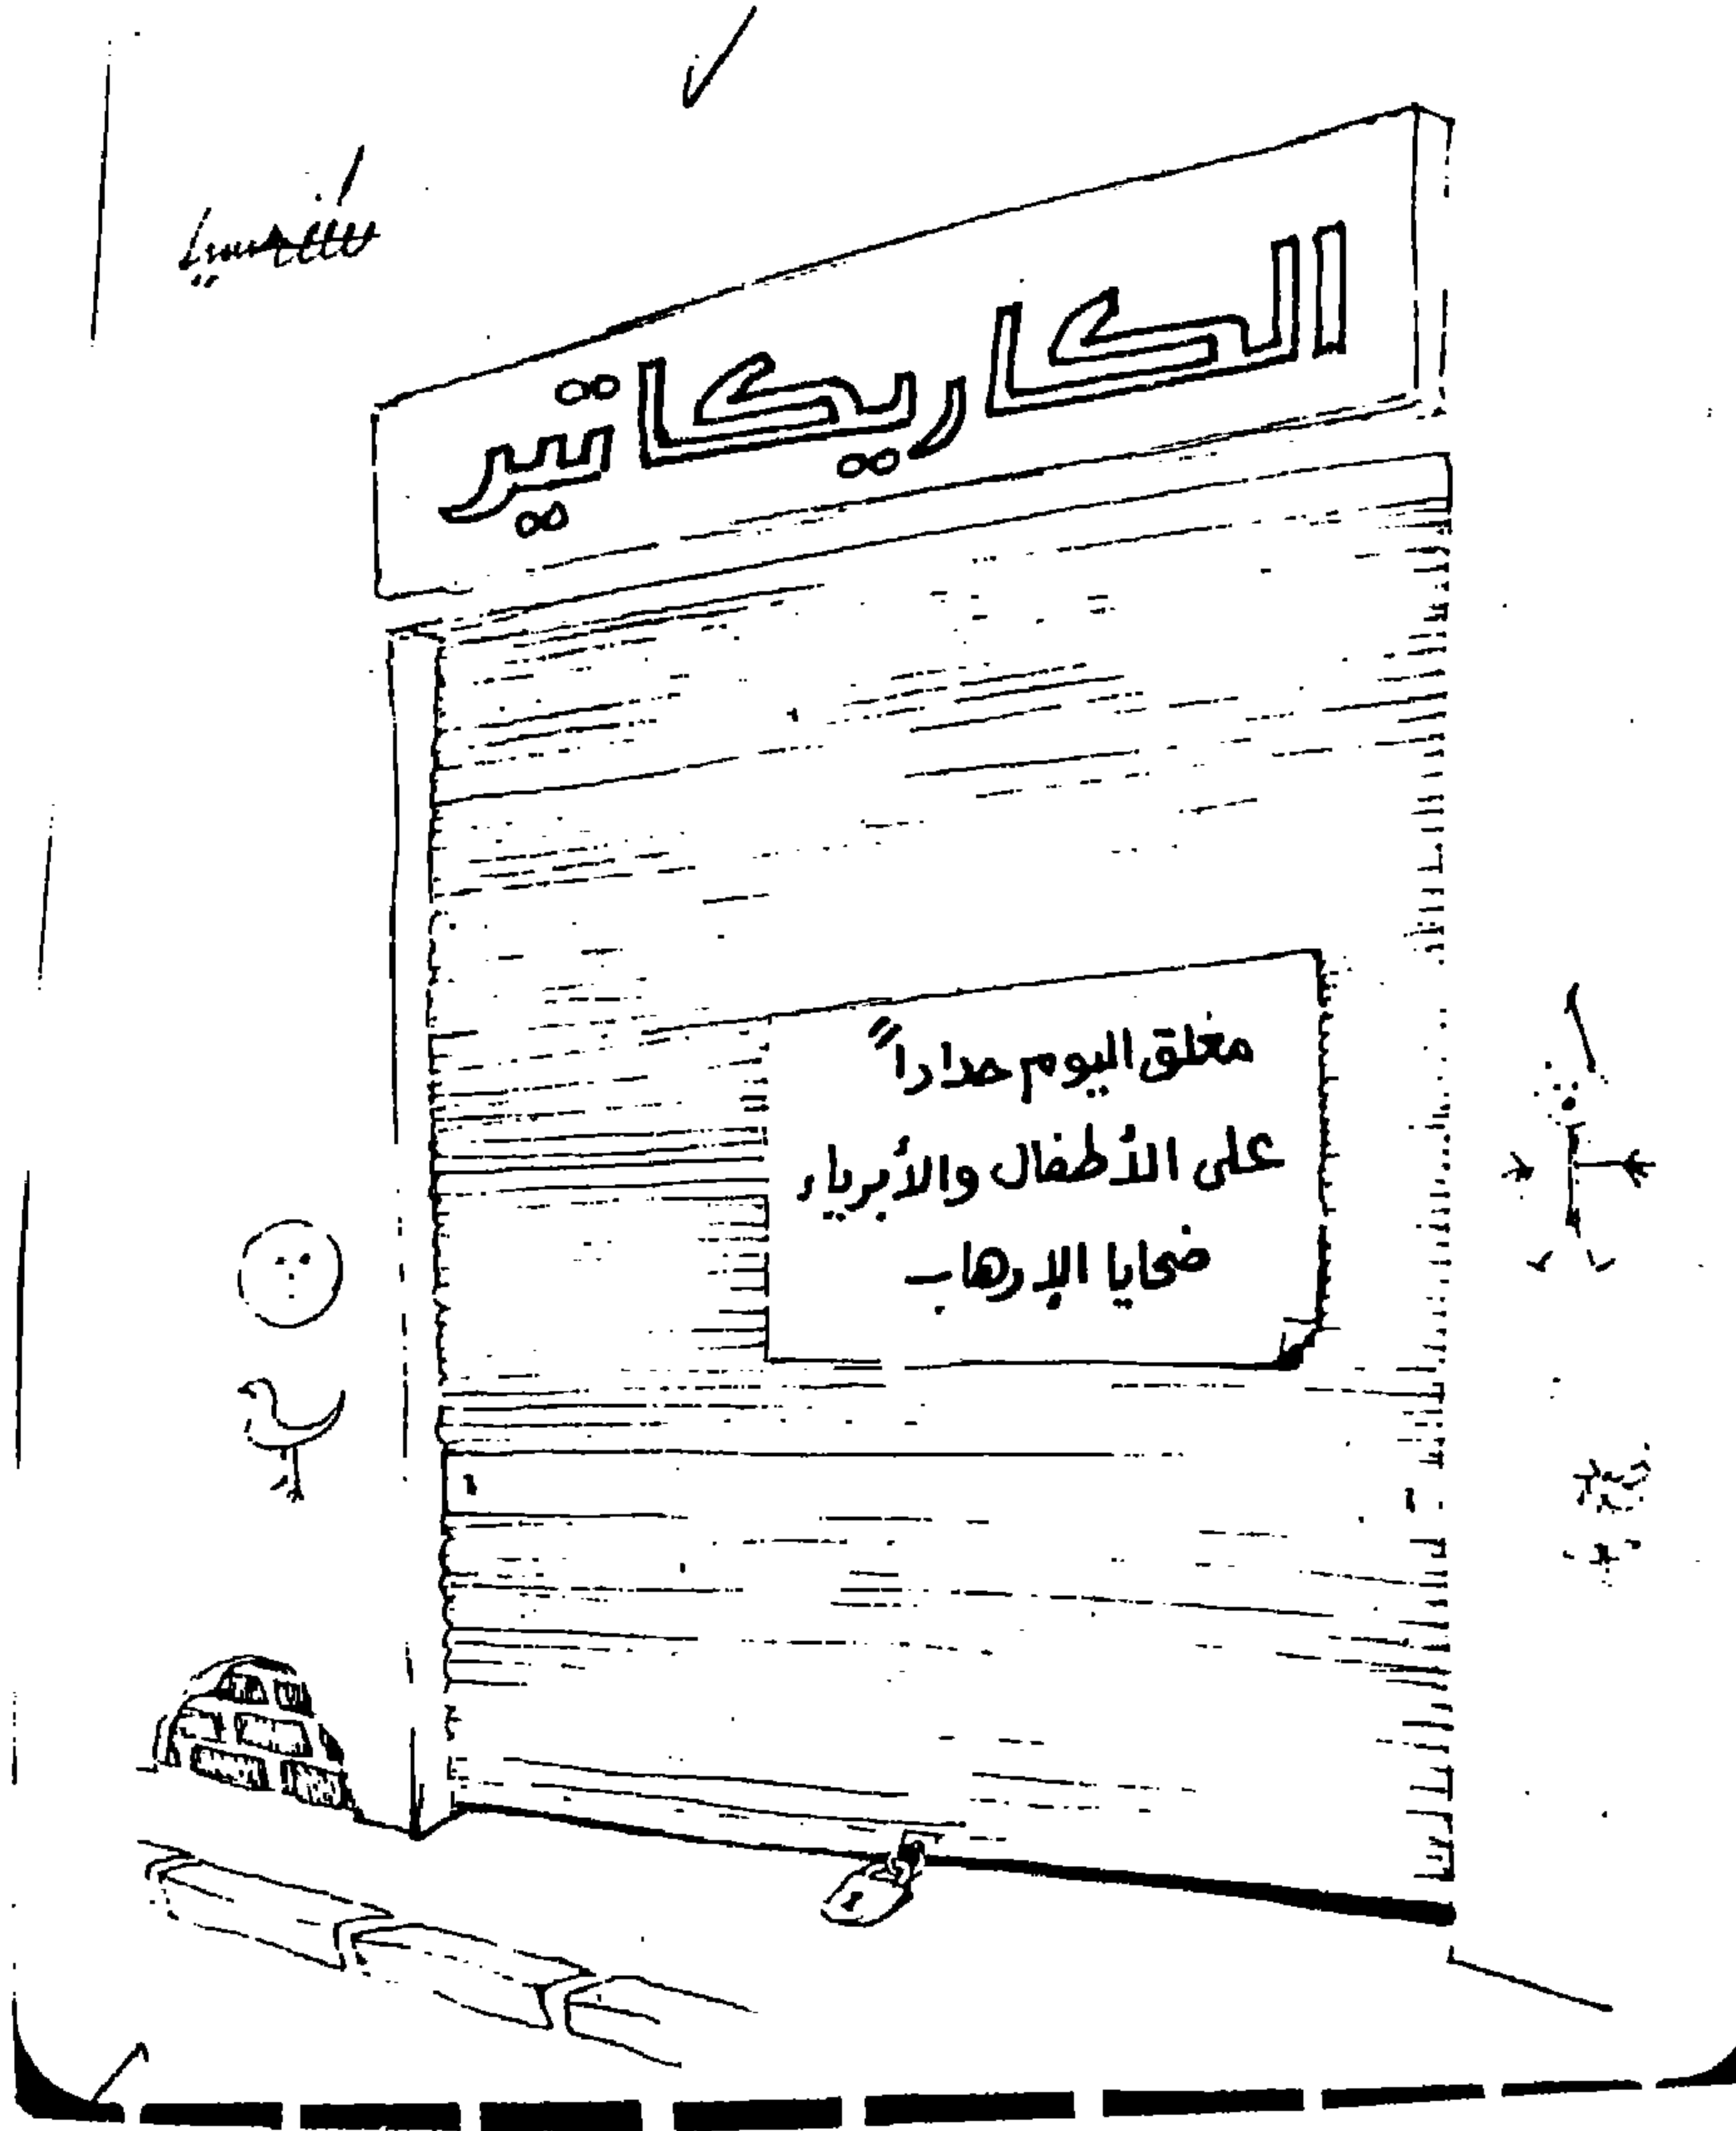 الكاريكاتير
مغلق اليوم حداداً
على الأطفال والأبرياء
ضحايا الإرهاب